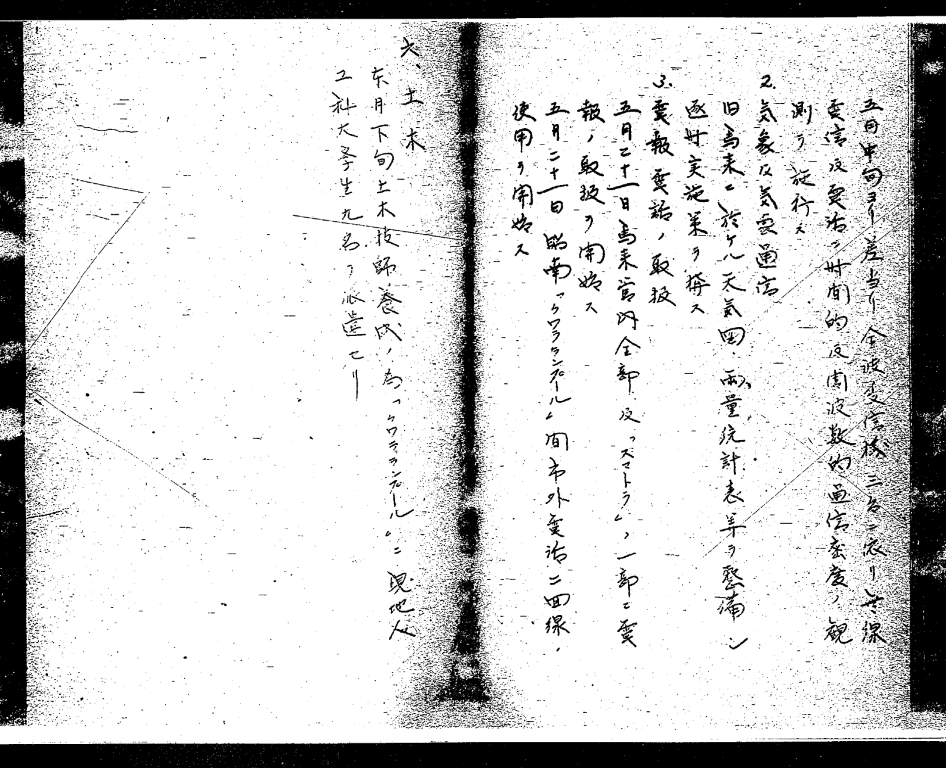 五月中旬ヨリ差当リ全波受信機三台ニ依リ無線
電信及電話ノ時間的及周波数的通信密度ノ観
測ヲ施行ス
2. 気象及気電通信
旧馬来ニ於ケル天気図、雨量統計表等ヲ整備シ
逐次実施策ヲ構ス
3. 電報電話ノ取扱
五月二十一日馬来管内全部及「スマトラ」ノ一部ニ電
報ノ取扱ヲ開始ス
五月二十一日昭南「クワラランプール」間市外電話二回線ノ
使用ヲ開始ス
六、土木
本月下旬土木技師養成ノ為「クワラランプール」ニ現地人
工科大学生九名ヲ派遣セリ